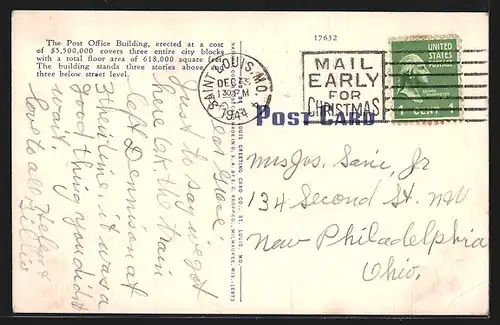 The Post Office Building, erected at a cost
of $5,500,000 covers three entire city blocks
with a total floor area of 618,000 square feet.
The building stands three stories above
three below street level.
17632
SAINT LOUIS, MO.
DEC 3
130 PM
1944
MAIL
EARLY
FOR
CHRISTMAS
UNITED
STATES
POSTAGE
1 CENT 1
POST CARD
Dear Grace,
Just to say we got
here ok the train
at Dennison at
3 that time, it was a
good thing you didn't
wait.
love to all Helen &
Mrs Jos. Sarie, Jr
134 Second St. NW
New Philadelphia
Ohio.